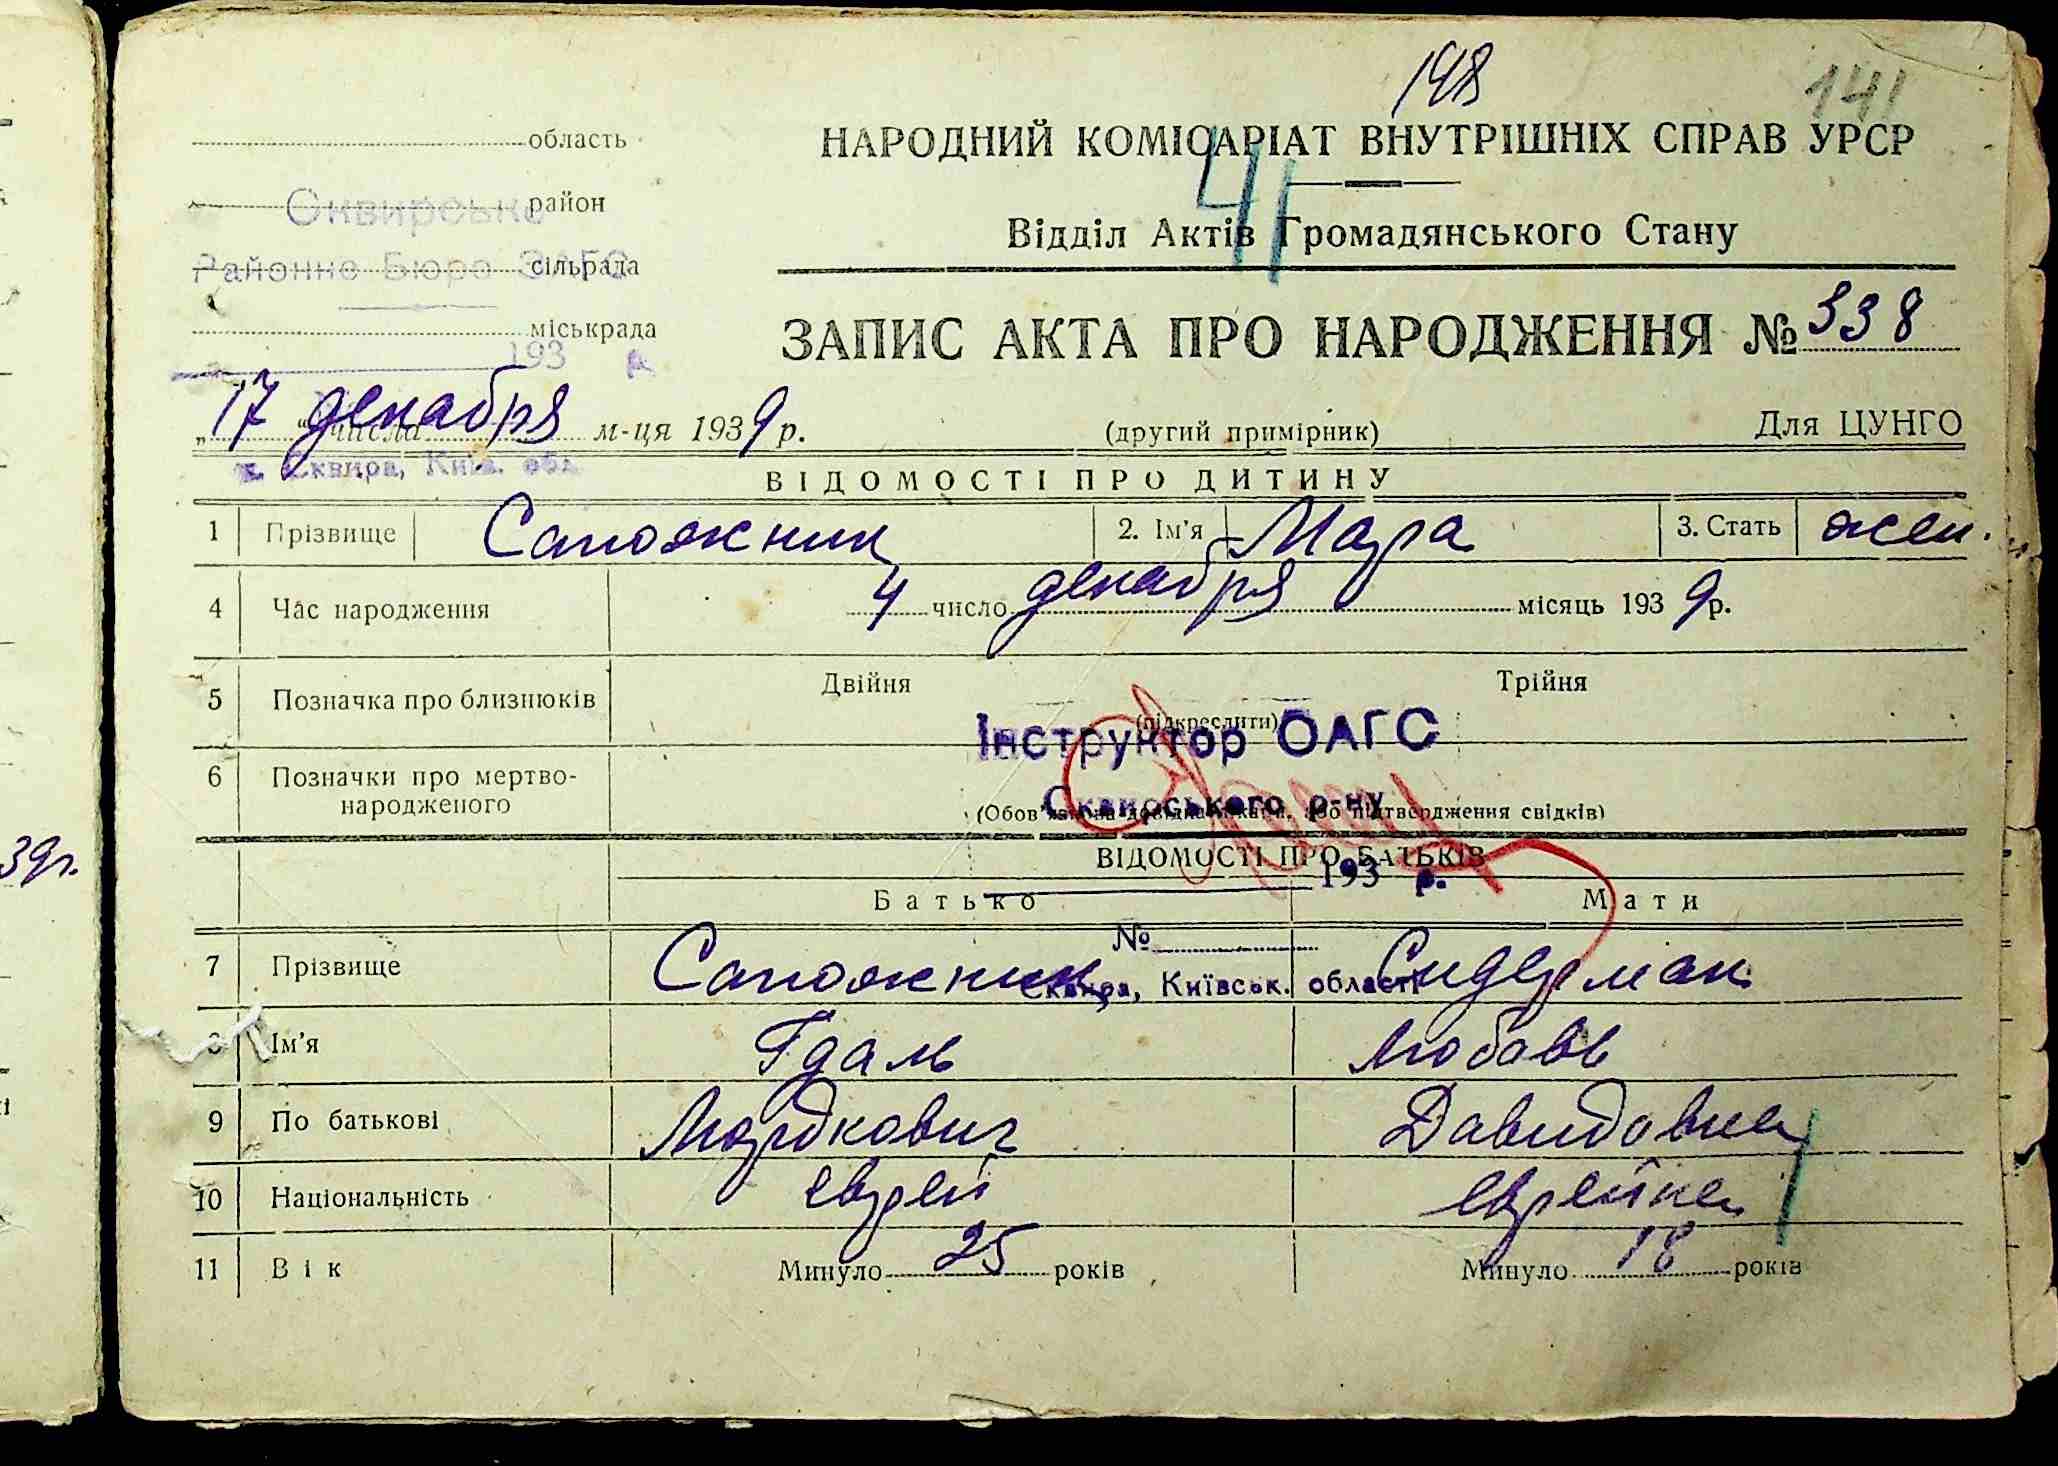 148
141
область
НАРОДНИЙ КОМІСАРІАТ ВНУТРІШНІХ СПРАВ УРСР
41
район
Сквирське
Відділ Актів Громадянського Стану
Районне Бюро ЗАГС
сільрада
міськрада
193
ЗАПИС АКТА ПРО НАРОДЖЕННЯ № 338
„17" числа декабря м-ця 1939 р.
(другий примірник)
Для ЦУНГО
м. Сквира, Київ. обл.
ВІДОМОСТІ ПРО ДИТИНУ
1 Прізвище Сапожник 2. Ім'я Мара 3. Стать жен.
4 Час народження 4 число декабря місяць 1939 р.
5 Позначка про близнюків Двійня Трійня
(підкреслити)
Інструктор ОАГС
6 Позначки про мертвонародженого
Сквирського р-ну
(Обов'язкова довідка лікаря, або підтвердження свідків)
ВІДОМОСТІ ПРО БАТЬКІВ
193 р.
Батько Мати
№
7 Прізвище Сапожник Сидерман
Сквира, Київськ. області
8 Ім'я Гдаль Любовь
9 По батькові Мордкович Давидовна
10 Національність еврей еврейка
11 Вік Минуло 25 років Минуло 18 років
39 г.